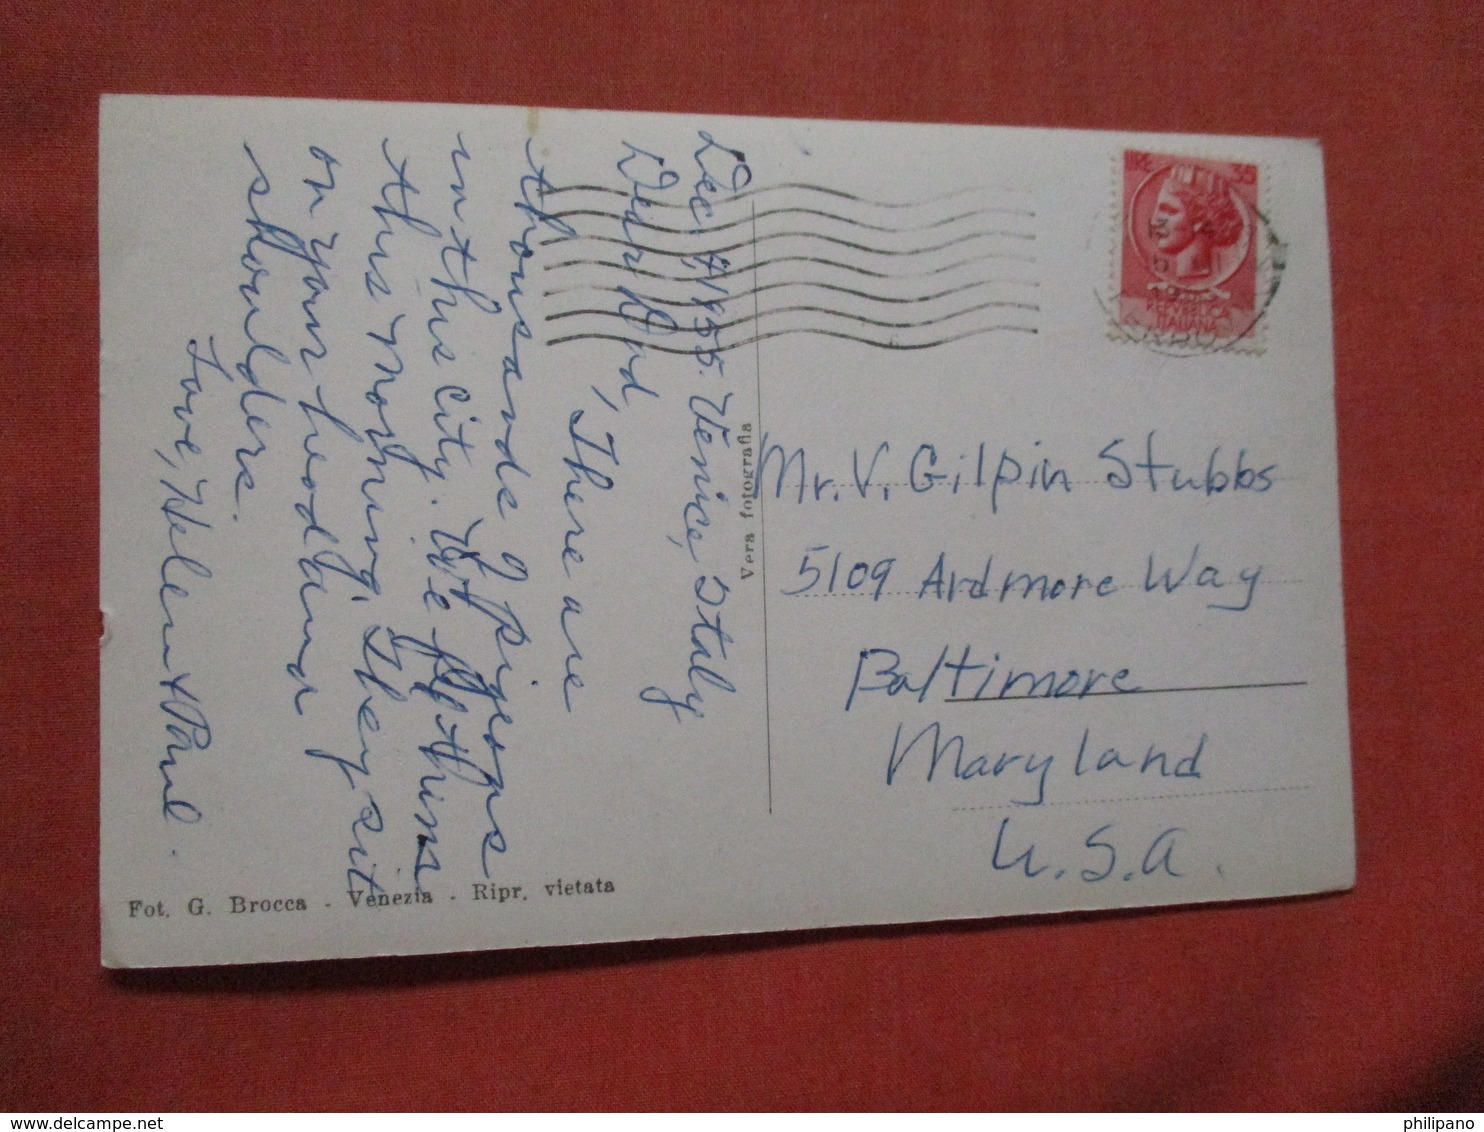 Dec. 4, 1955. Venice, Italy
Dear Dad,
There are
thousands of pigeons
in this city. We fed them
this morning. They sit
on your head and
shoulders.
Love, Helen & Paul.
Vera fotografia
Fot. G. Brocca - Venezia - Ripr. vietata
LIRE 35
REPVBBLICA
ITALIANA
Mr. V. Gilpin Stubbs
5109 Ardmore Way
Baltimore
Maryland
U.S.A.
philipano